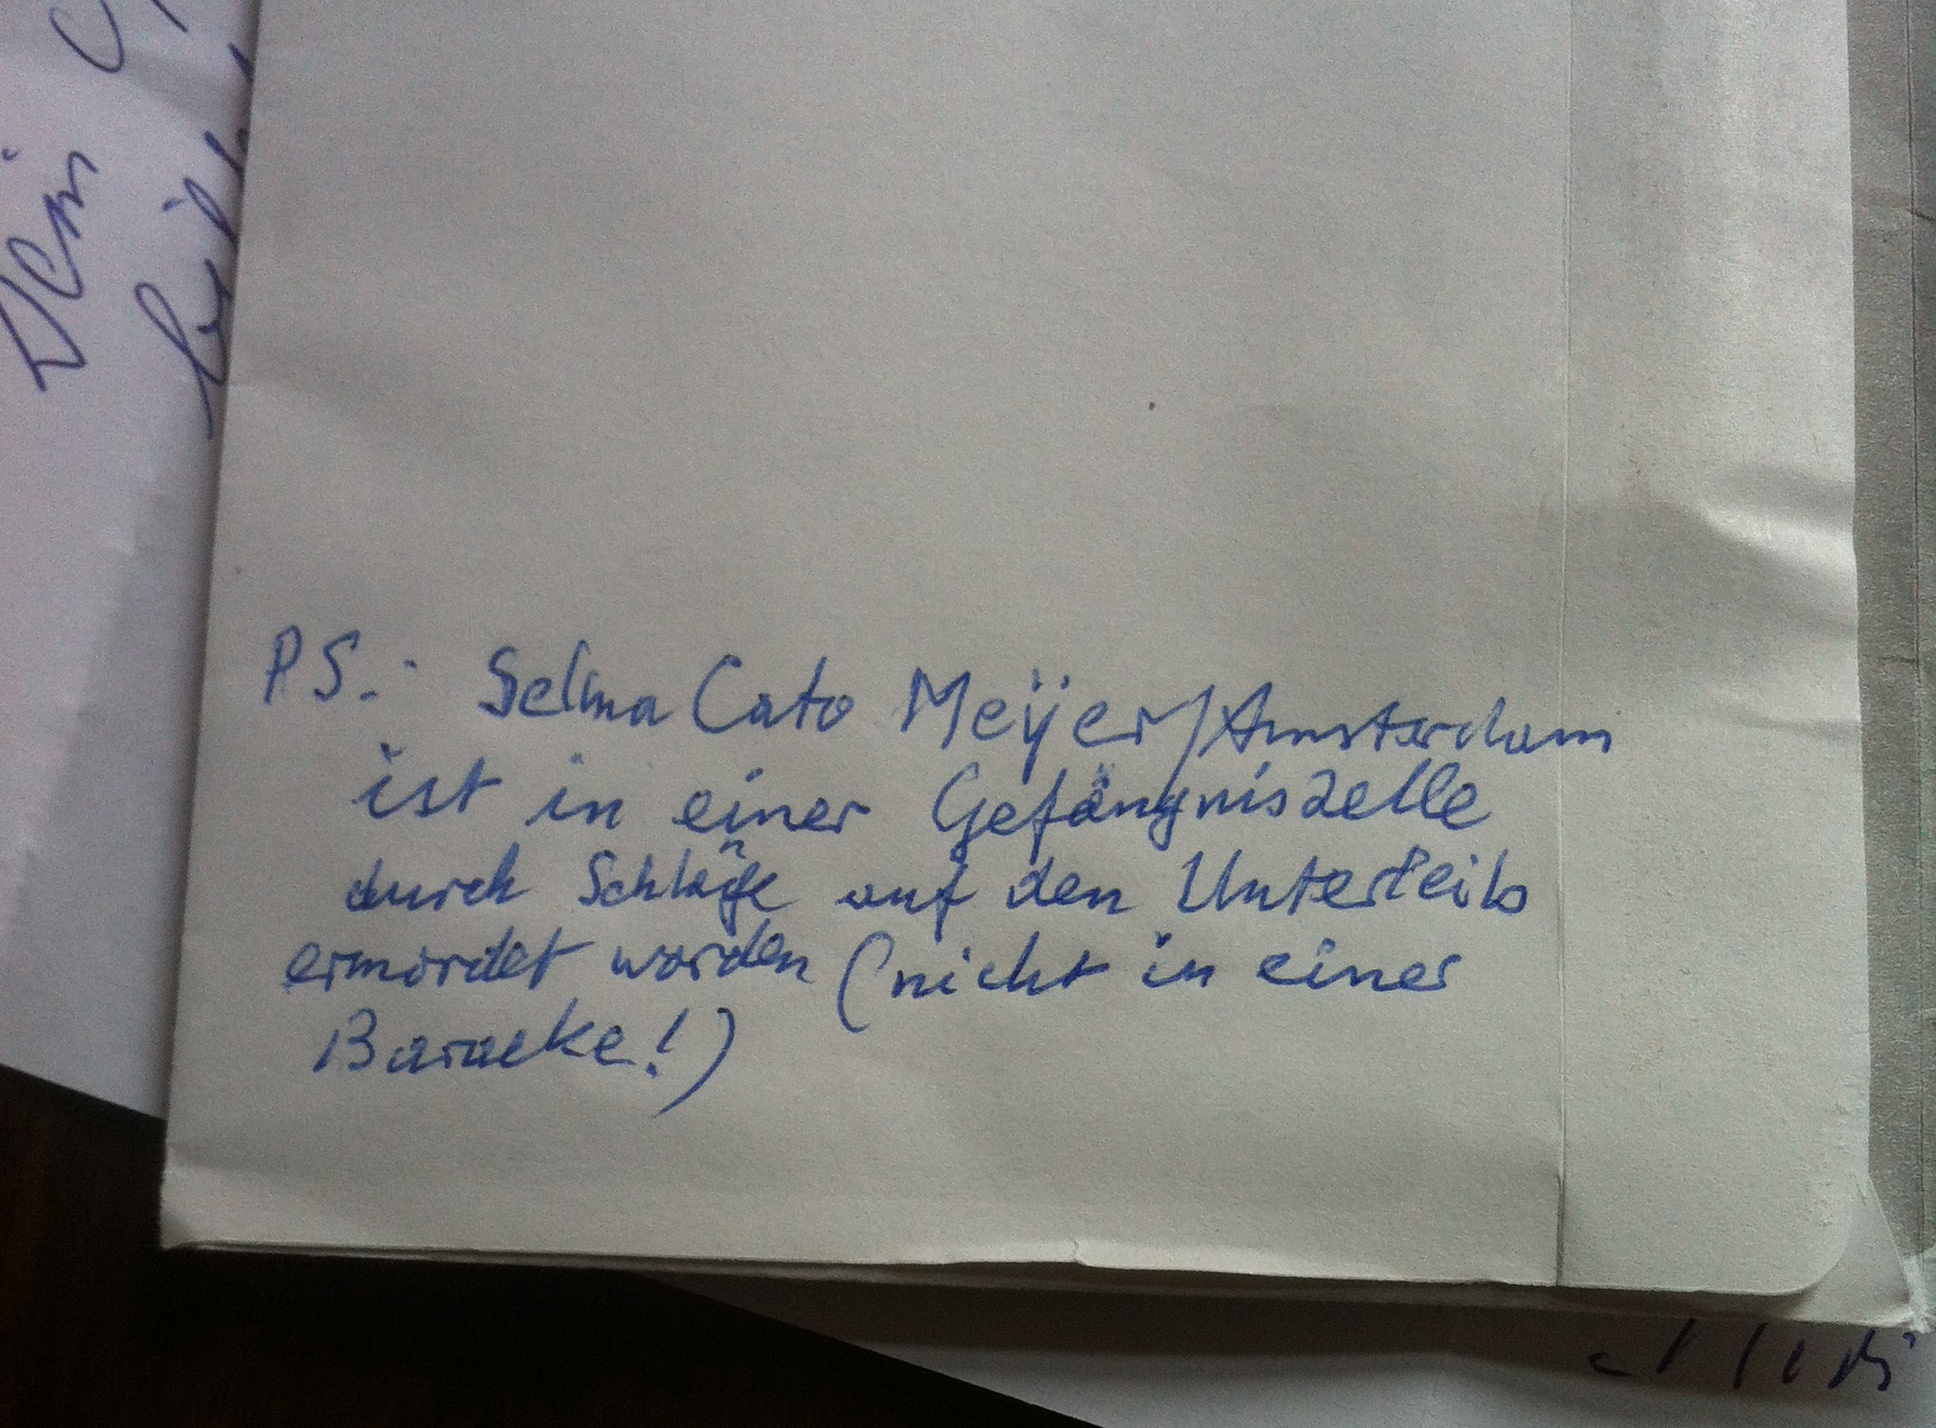 Dein
P.S.: Selma Cato Meÿer/Amsterdam
ist in einer Gefängniszelle
durch Schläge auf den Unterleib
ermordet worden (nicht in einer
Baracke!)